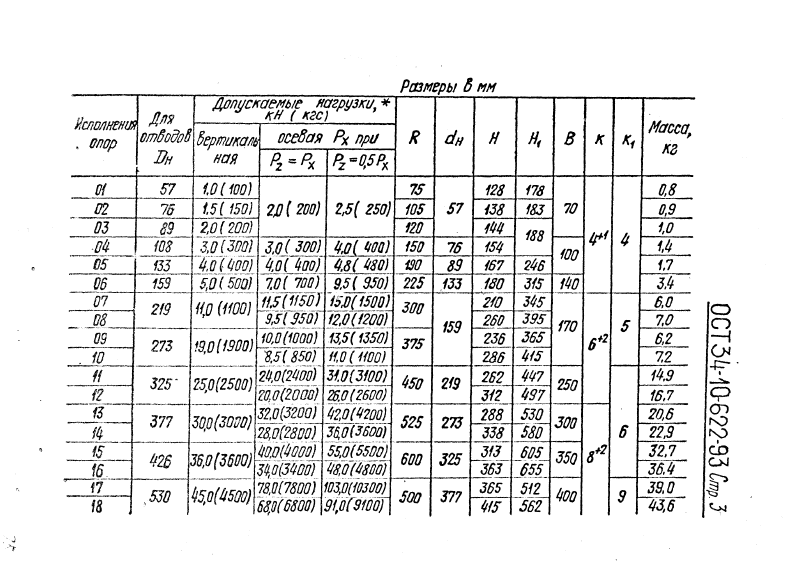 Размеры в мм
Исполнения опор | Для отводов Dн | Допускаемые нагрузки,* кН (кгс) | R | dн | H | H₁ | B | K | K₁ | Масса, кг
вертикальная | осевая Pₓ при
P_z = Pₓ | P_z = 0,5Pₓ
01 | 57 | 1,0 (100) | 2,0 (200) | 2,5 (250) | 75 | 57 | 128 | 178 | 70 | 4⁺¹ | 4 | 0,8
02 | 76 | 1,5 (150) | 105 | 138 | 183 | 0,9
03 | 89 | 2,0 (200) | 120 | 144 | 188 | 1,0
04 | 108 | 3,0 (300) | 3,0 (300) | 4,0 (400) | 150 | 76 | 154 | 100 | 1,4
05 | 133 | 4,0 (400) | 4,0 (400) | 4,8 (480) | 190 | 89 | 167 | 246 | 1,7
06 | 159 | 5,0 (500) | 7,0 (700) | 9,5 (950) | 225 | 133 | 180 | 315 | 140 | 3,4
07 | 219 | 11,0 (1100) | 11,5 (1150) | 15,0 (1500) | 300 | 159 | 210 | 345 | 170 | 6⁺² | 5 | 6,0
08 | 9,5 (950) | 12,0 (1200) | 260 | 395 | 7,0
09 | 273 | 19,0 (1900) | 10,0 (1000) | 13,5 (1350) | 375 | 236 | 365 | 6,2
10 | 8,5 (850) | 11,0 (1100) | 286 | 415 | 7,2
11 | 325 | 25,0 (2500) | 24,0 (2400) | 31,0 (3100) | 450 | 219 | 262 | 447 | 250 | 6 | 14,9
12 | 20,0 (2000) | 26,0 (2600) | 312 | 497 | 16,7
13 | 377 | 30,0 (3000) | 32,0 (3200) | 42,0 (4200) | 525 | 273 | 288 | 530 | 300 | 8⁺² | 20,6
14 | 28,0 (2800) | 36,0 (3600) | 338 | 580 | 22,9
15 | 426 | 36,0 (3600) | 40,0 (4000) | 55,0 (5500) | 600 | 325 | 313 | 605 | 350 | 32,7
16 | 34,0 (3400) | 48,0 (4800) | 363 | 655 | 36,4
17 | 530 | 45,0 (4500) | 78,0 (7800) | 103,0 (10300) | 500 | 377 | 365 | 512 | 400 | 9 | 39,0
18 | 68,0 (6800) | 91,0 (9100) | 415 | 562 | 43,6
ОСТ 34-10-622-93 Стр. 3